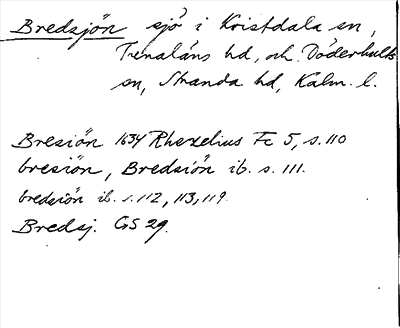 Bredsjön sjö i Kristdala sn,
Tunaläns hd, och Döderhults
sn, Stranda hd, Kalm. l.
Bresiön 1634 Rhezelius Fc 5, s. 110
bresiön, Bredsiön ib. s. 111.
bredsiön ib. s. 112, 113, 119.
Bredsj. GS 29.